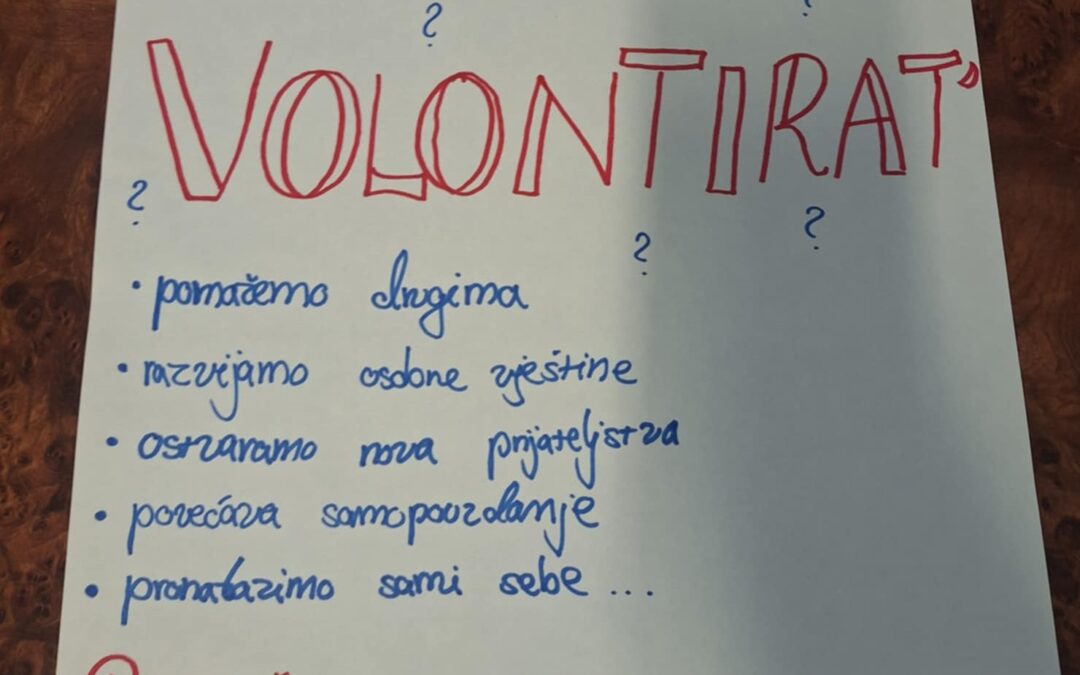 ? ?
VOLONTIRAT'
? ? ?
• pomažemo drugima
• razvijamo osobne vještine
• ostvaramo nova prijateljstva
• povećava samopouzdanje
• pronalazimo sami sebe ...